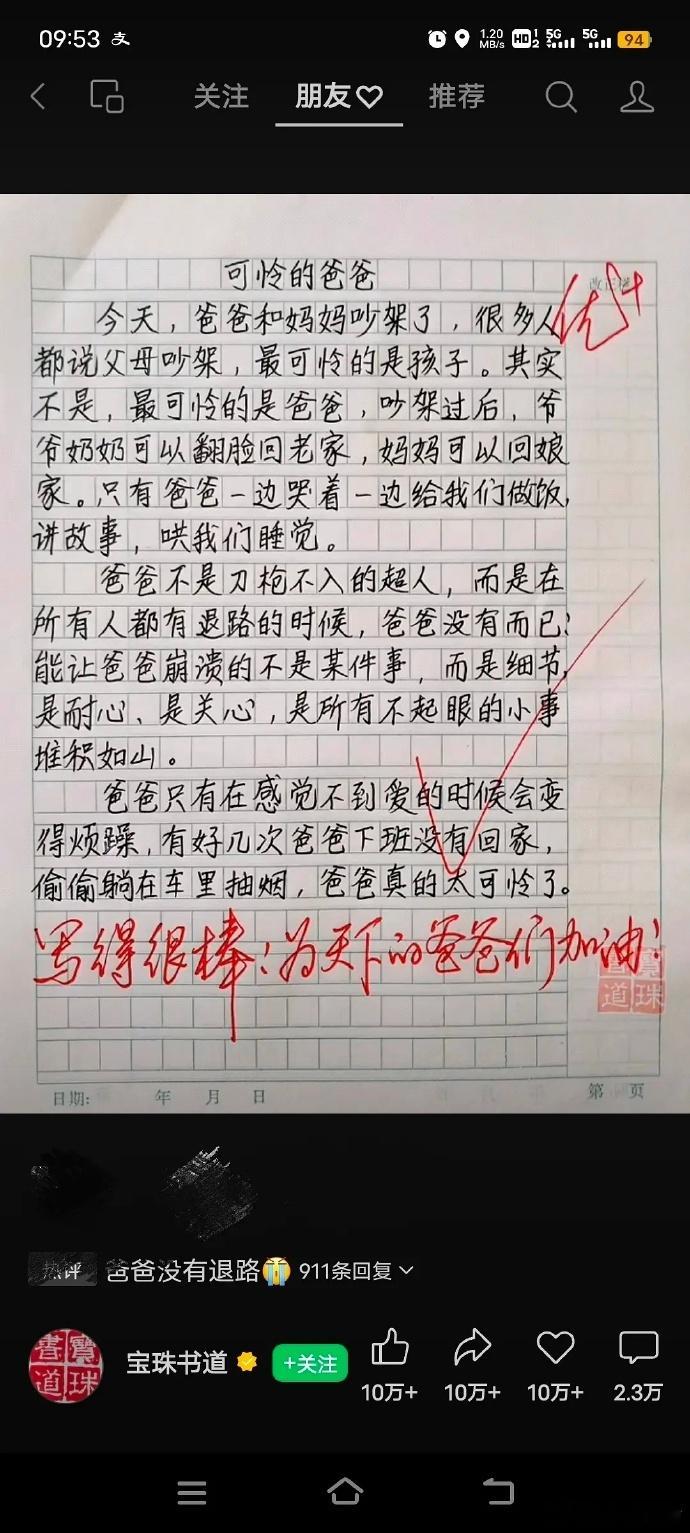 09:53 支
1.20 MB/s HD 1 2 5G 5G 94
关注 朋友♡ 推荐
可怜的爸爸
优+
今天，爸爸和妈妈吵架了，很多人
都说父母吵架，最可怜的是孩子。其实
不是，最可怜的是爸爸，吵架过后，爷
爷奶奶可以翻脸回老家，妈妈可以回娘
家。只有爸爸一边哭着一边给我们做饭，
讲故事，哄我们睡觉。
爸爸不是刀枪不入的超人，而是在
所有人都有退路的时候，爸爸没有而已！
能让爸爸崩溃的不是某件事，而是细节，
是耐心、是关心，是所有不起眼的小事
堆积如山。
爸爸只有在感觉不到爱的时候会变
得烦躁，有好几次爸爸下班没有回家，
偷偷躺在车里抽烟，爸爸真的太可怜了。
写得很棒！为天下的爸爸们加油！
書寶
道珠
日期： 年 月 日 第 页
热评 爸爸没有退路😭 911条回复
書寶
道珠
宝珠书道 +关注
10万+ 10万+ 10万+ 2.3万